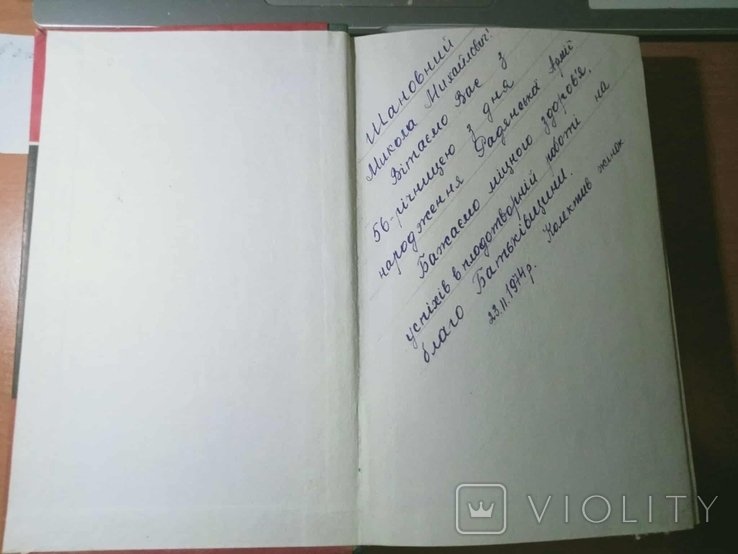 Шановний
Микола Михайлович!
Вітаємо Вас з
56-річницею з дня
народження Радянської Армії
Бажаємо міцного здоров'я,
успіхів в плодотворній роботи на
благо Батьківщини.
23.II.1974р. Колектив жінок
VIOLITY